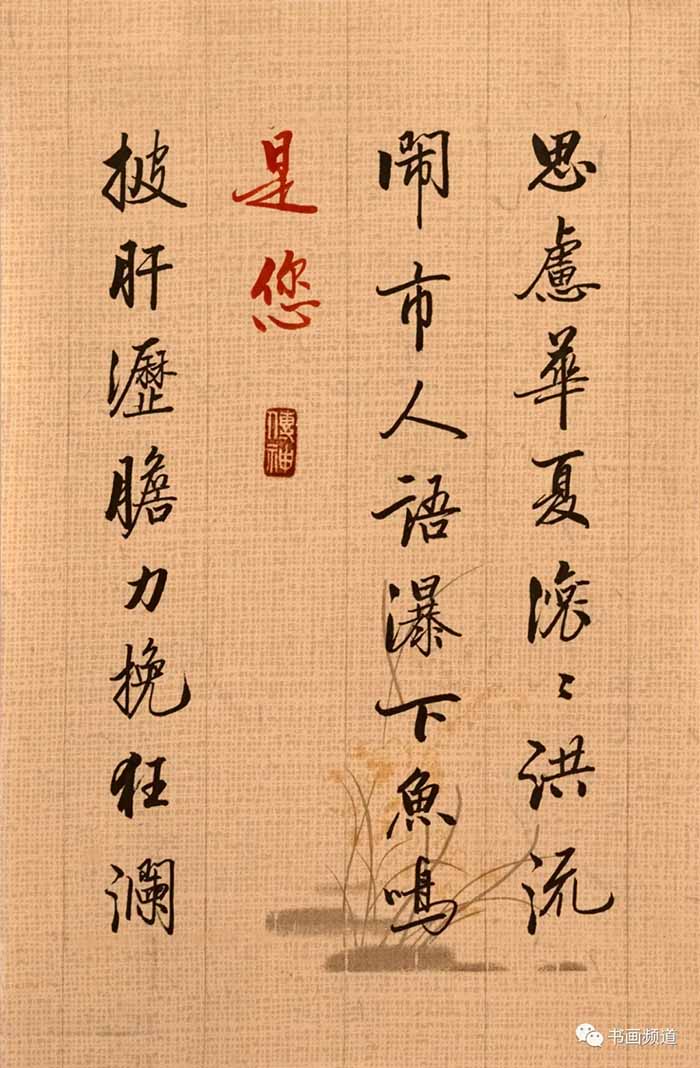 思慮華夏滾〻洪流
鬧市人語瀑下魚鳴
是您
傳神
披肝瀝膽力挽狂瀾
书画频道